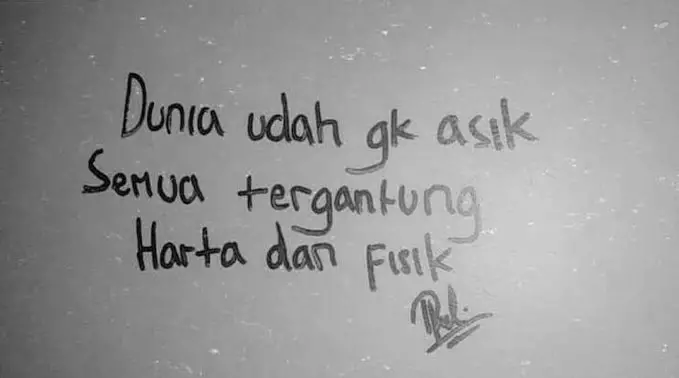 Dunia udah gk asik
Semua tergantung
Harta dan Fisik